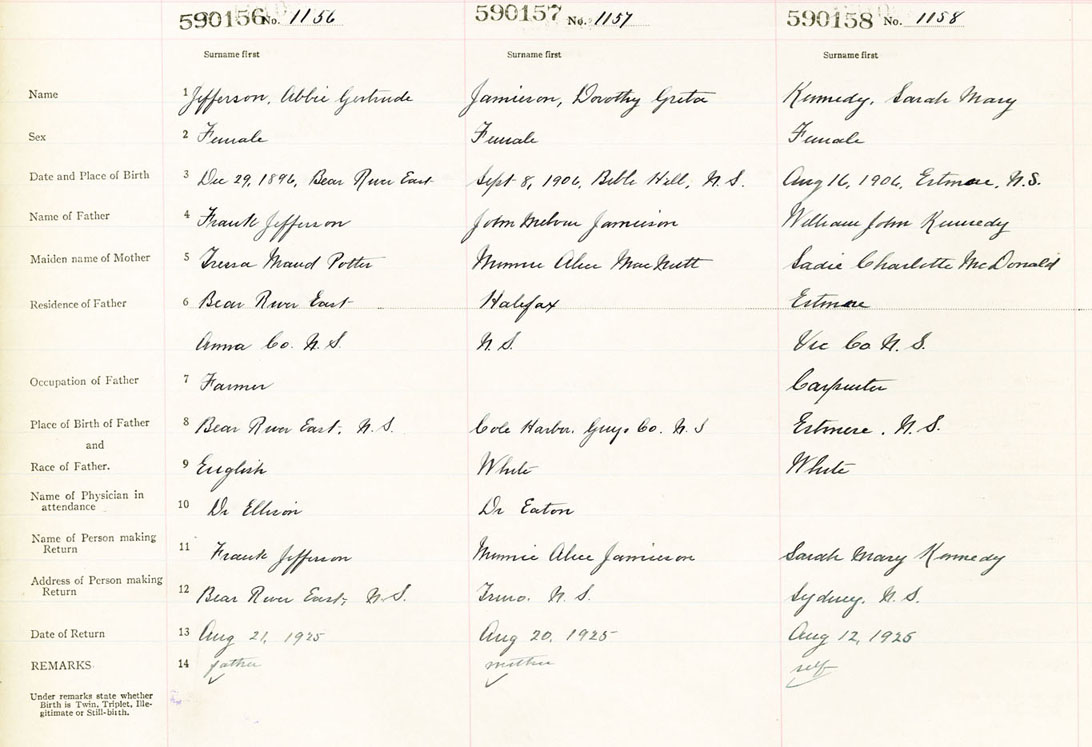 590156 No. 1156 590157 No. 1157 590158 No. 1158
Surname first Surname first Surname first
Name 1 Jefferson, Abbie Gertrude Jamieson, Dorothy Greta Kennedy, Sarah Mary
Sex 2 Female Female Female
Date and Place of Birth 3 Dec 29, 1896, Bear River East Sept 8, 1906, Bible Hill, N.S. Aug 16, 1906, Estmere, N.S.
Name of Father 4 Frank Jefferson John Jamieson William John Kennedy
Maiden name of Mother 5 Tressa Maud Potter Minnie Alice MacNutt Sadie Charlotte McDonald
Residence of Father 6 Bear River East Halifax Estmere
Anna Co. N.S. N.S. Vic Co N.S.
Occupation of Father 7 Farmer Carpenter
Place of Birth of Father 8 Bear River East, N.S. Cole Harbor, Guy. Co. N.S Estmere, N.S.
and
Race of Father. 9 English White White
Name of Physician in
attendance 10 Dr Ellison Dr Eaton
Name of Person making
Return 11 Frank Jefferson Minnie Alice Jamieson Sarah Mary Kennedy
Address of Person making
Return 12 Bear River East, N.S. Truro, N.S. Sydney, N.S.
Date of Return 13 Aug 21, 1925 Aug 20, 1925 Aug 12, 1925
REMARKS 14 father mother self
Under remarks state whether
Birth is Twin, Triplet, Ille-
gitimate or Still-birth.